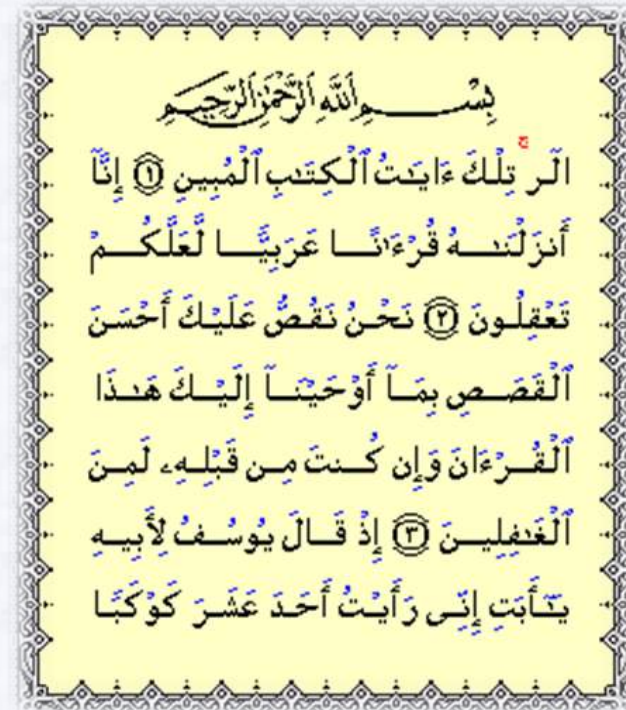 بِسْمِ ٱللَّهِ ٱلرَّحْمَٰنِ ٱلرَّحِيمِ
الٓرۚ تِلْكَ ءَايَٰتُ ٱلْكِتَٰبِ ٱلْمُبِينِ ۝١ إِنَّآ
أَنزَلْنَٰهُ قُرْءَٰنًا عَرَبِيًّا لَّعَلَّكُمْ
تَعْقِلُونَ ۝٢ نَحْنُ نَقُصُّ عَلَيْكَ أَحْسَنَ
ٱلْقَصَصِ بِمَآ أَوْحَيْنَآ إِلَيْكَ هَٰذَا
ٱلْقُرْءَانَ وَإِن كُنتَ مِن قَبْلِهِۦ لَمِنَ
ٱلْغَٰفِلِينَ ۝٣ إِذْ قَالَ يُوسُفُ لِأَبِيهِ
يَٰٓأَبَتِ إِنِّى رَأَيْتُ أَحَدَ عَشَرَ كَوْكَبًا